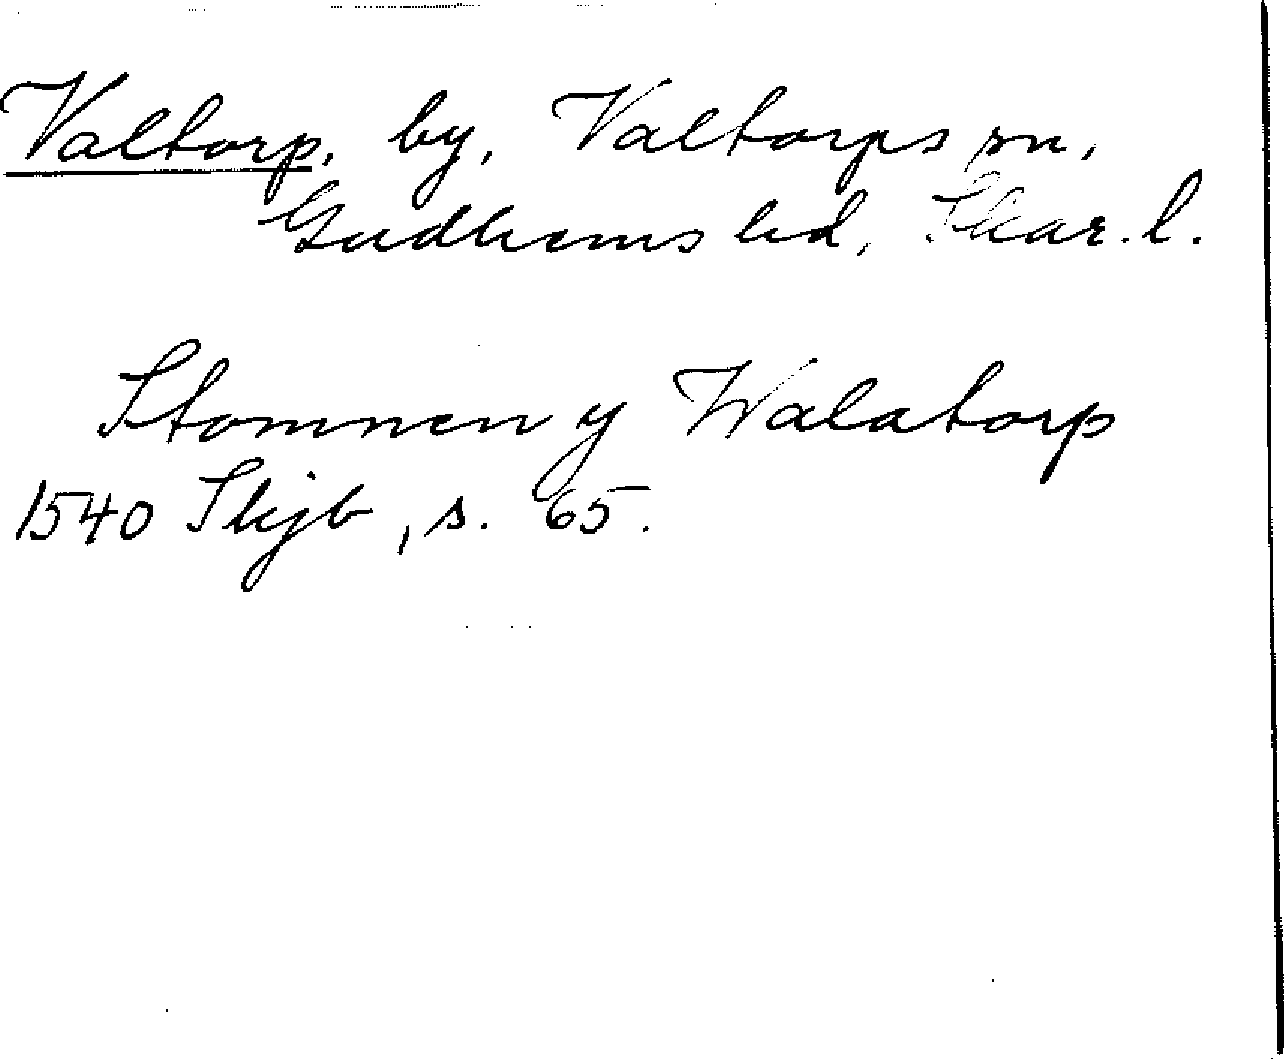 Valtorp, by, Valtorps sn,
Gudhems hd, Skar. l.
Stommen y Walatorp
1540 Skjb, s. 65.